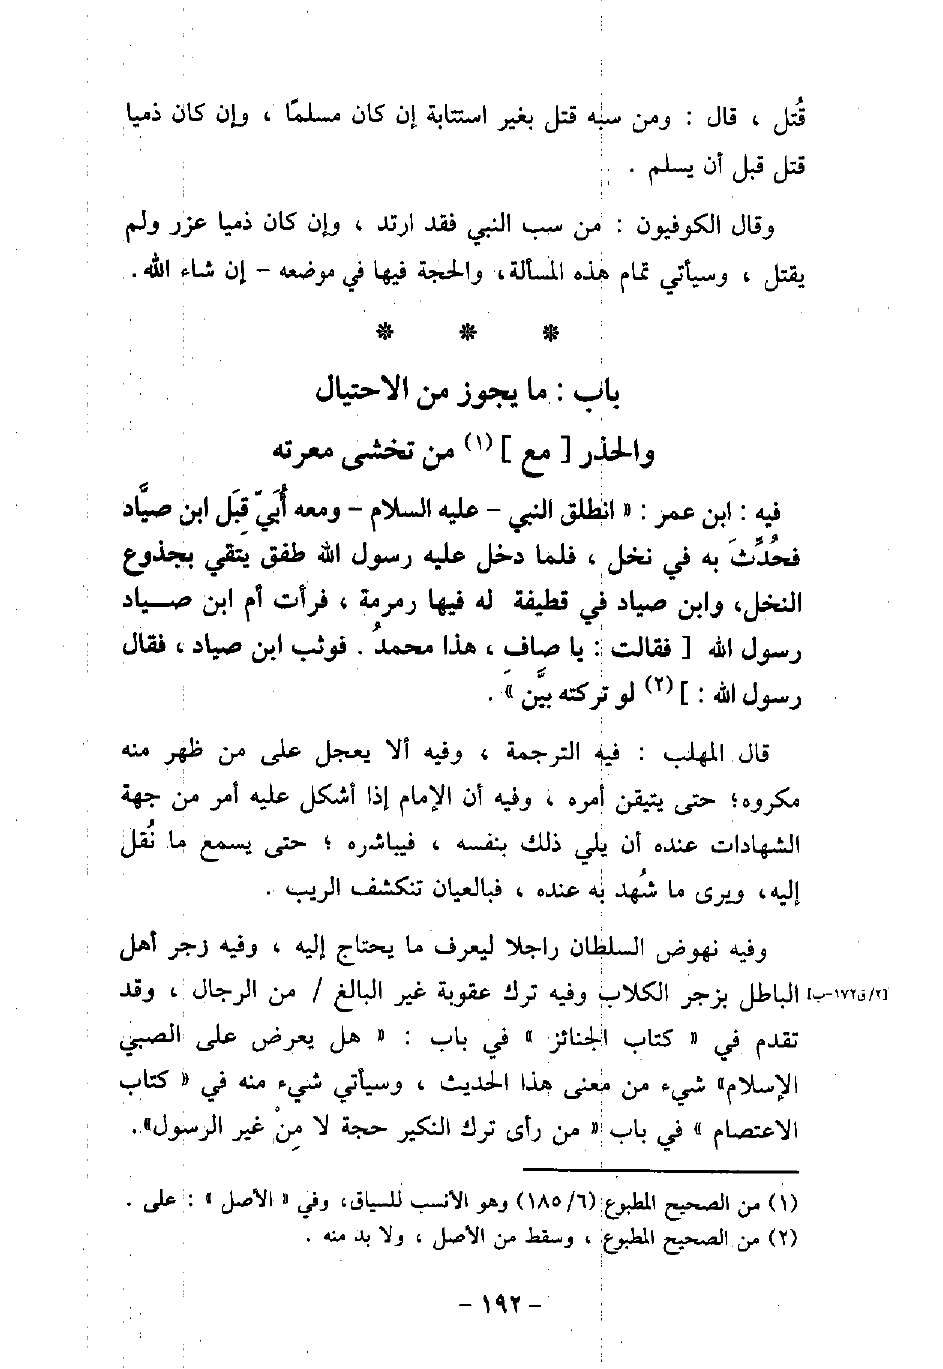 قُتل ، قال : ومن سبه قتل بغير استتابة إن كان مسلمًا ، وإن كان ذميا
قتل قبل أن يسلم .
وقال الكوفيون : من سب النبي فقد ارتد ، وإن كان ذميا عزر ولم
يقتل ، وسيأتي تمام هذه المسألة، والحجة فيها في موضعه – إن شاء الله .
* * *
باب : ما يجوز من الاحتيال
والحذر [ مع ] (١) من تخشى معرته
فيه : ابن عمر : « انطلق النبي – عليه السلام – ومعه أُبَيّ قِبَل ابن صيَّاد
فحُدِّثَ به في نخل ، فلما دخل عليه رسول الله طفق يتقي بجذوع
النخل، وابن صياد في قطيفة له فيها رمرمة ، فرأت أم ابن صـياد
رسول الله [ فقالت : يا صافِ ، هذا محمدُ . فوثب ابن صياد ، فقال
رسول الله : ] (٢) لو تركته بيَّن » .
قال المهلب : فيه الترجمة ، وفيه ألا يعجل على من ظهر منه
مكروه؛ حتى يتيقن أمره ، وفيه أن الإمام إذا أشكل عليه أمر من جهة
الشهادات عنده أن يلي ذلك بنفسه ، فيباشره ؛ حتى يسمع ما نُقل
إليه، ويرى ما شُهد به عنده ، فبالعيان تنكشف الريب .
وفيه نهوض السلطان راجلا ليعرف ما يحتاج إليه ، وفيه زجر أهل
الباطل بزجر الكلاب وفيه ترك عقوبة غير البالغ / من الرجال ، وقد [٢/ق١٧٢-ب]
تقدم في « كتاب الجنائز » في باب : « هل يعرض على الصبي
الإسلام» شيء من معنى هذا الحديث ، وسيأتي شيء منه في « كتاب
الاعتصام » في باب « من رأى ترك النكير حجة لا مِنْ غير الرسول».
(١) من الصحيح المطبوع (٦/ ١٨٥) وهو الأنسب للسياق، وفي « الأصل » : على .
(٢) من الصحيح المطبوع ، وسقط من الأصل ، ولا بد منه .
– ١٩٢ –